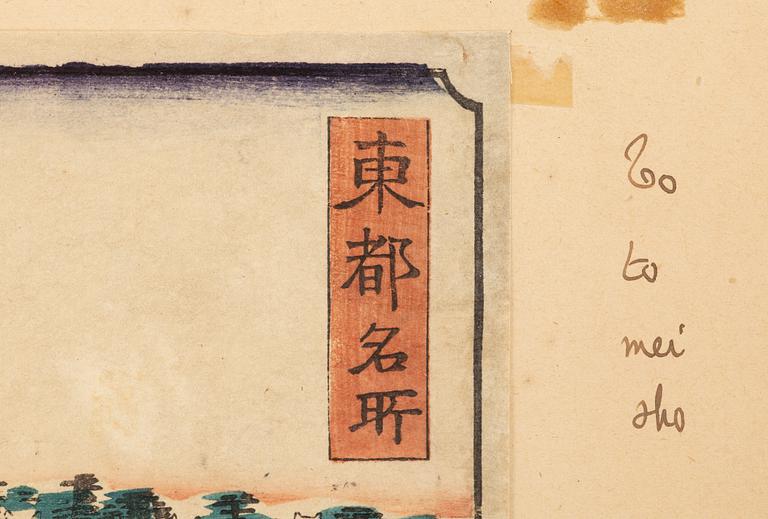 東都名所
To
to
mei
sho